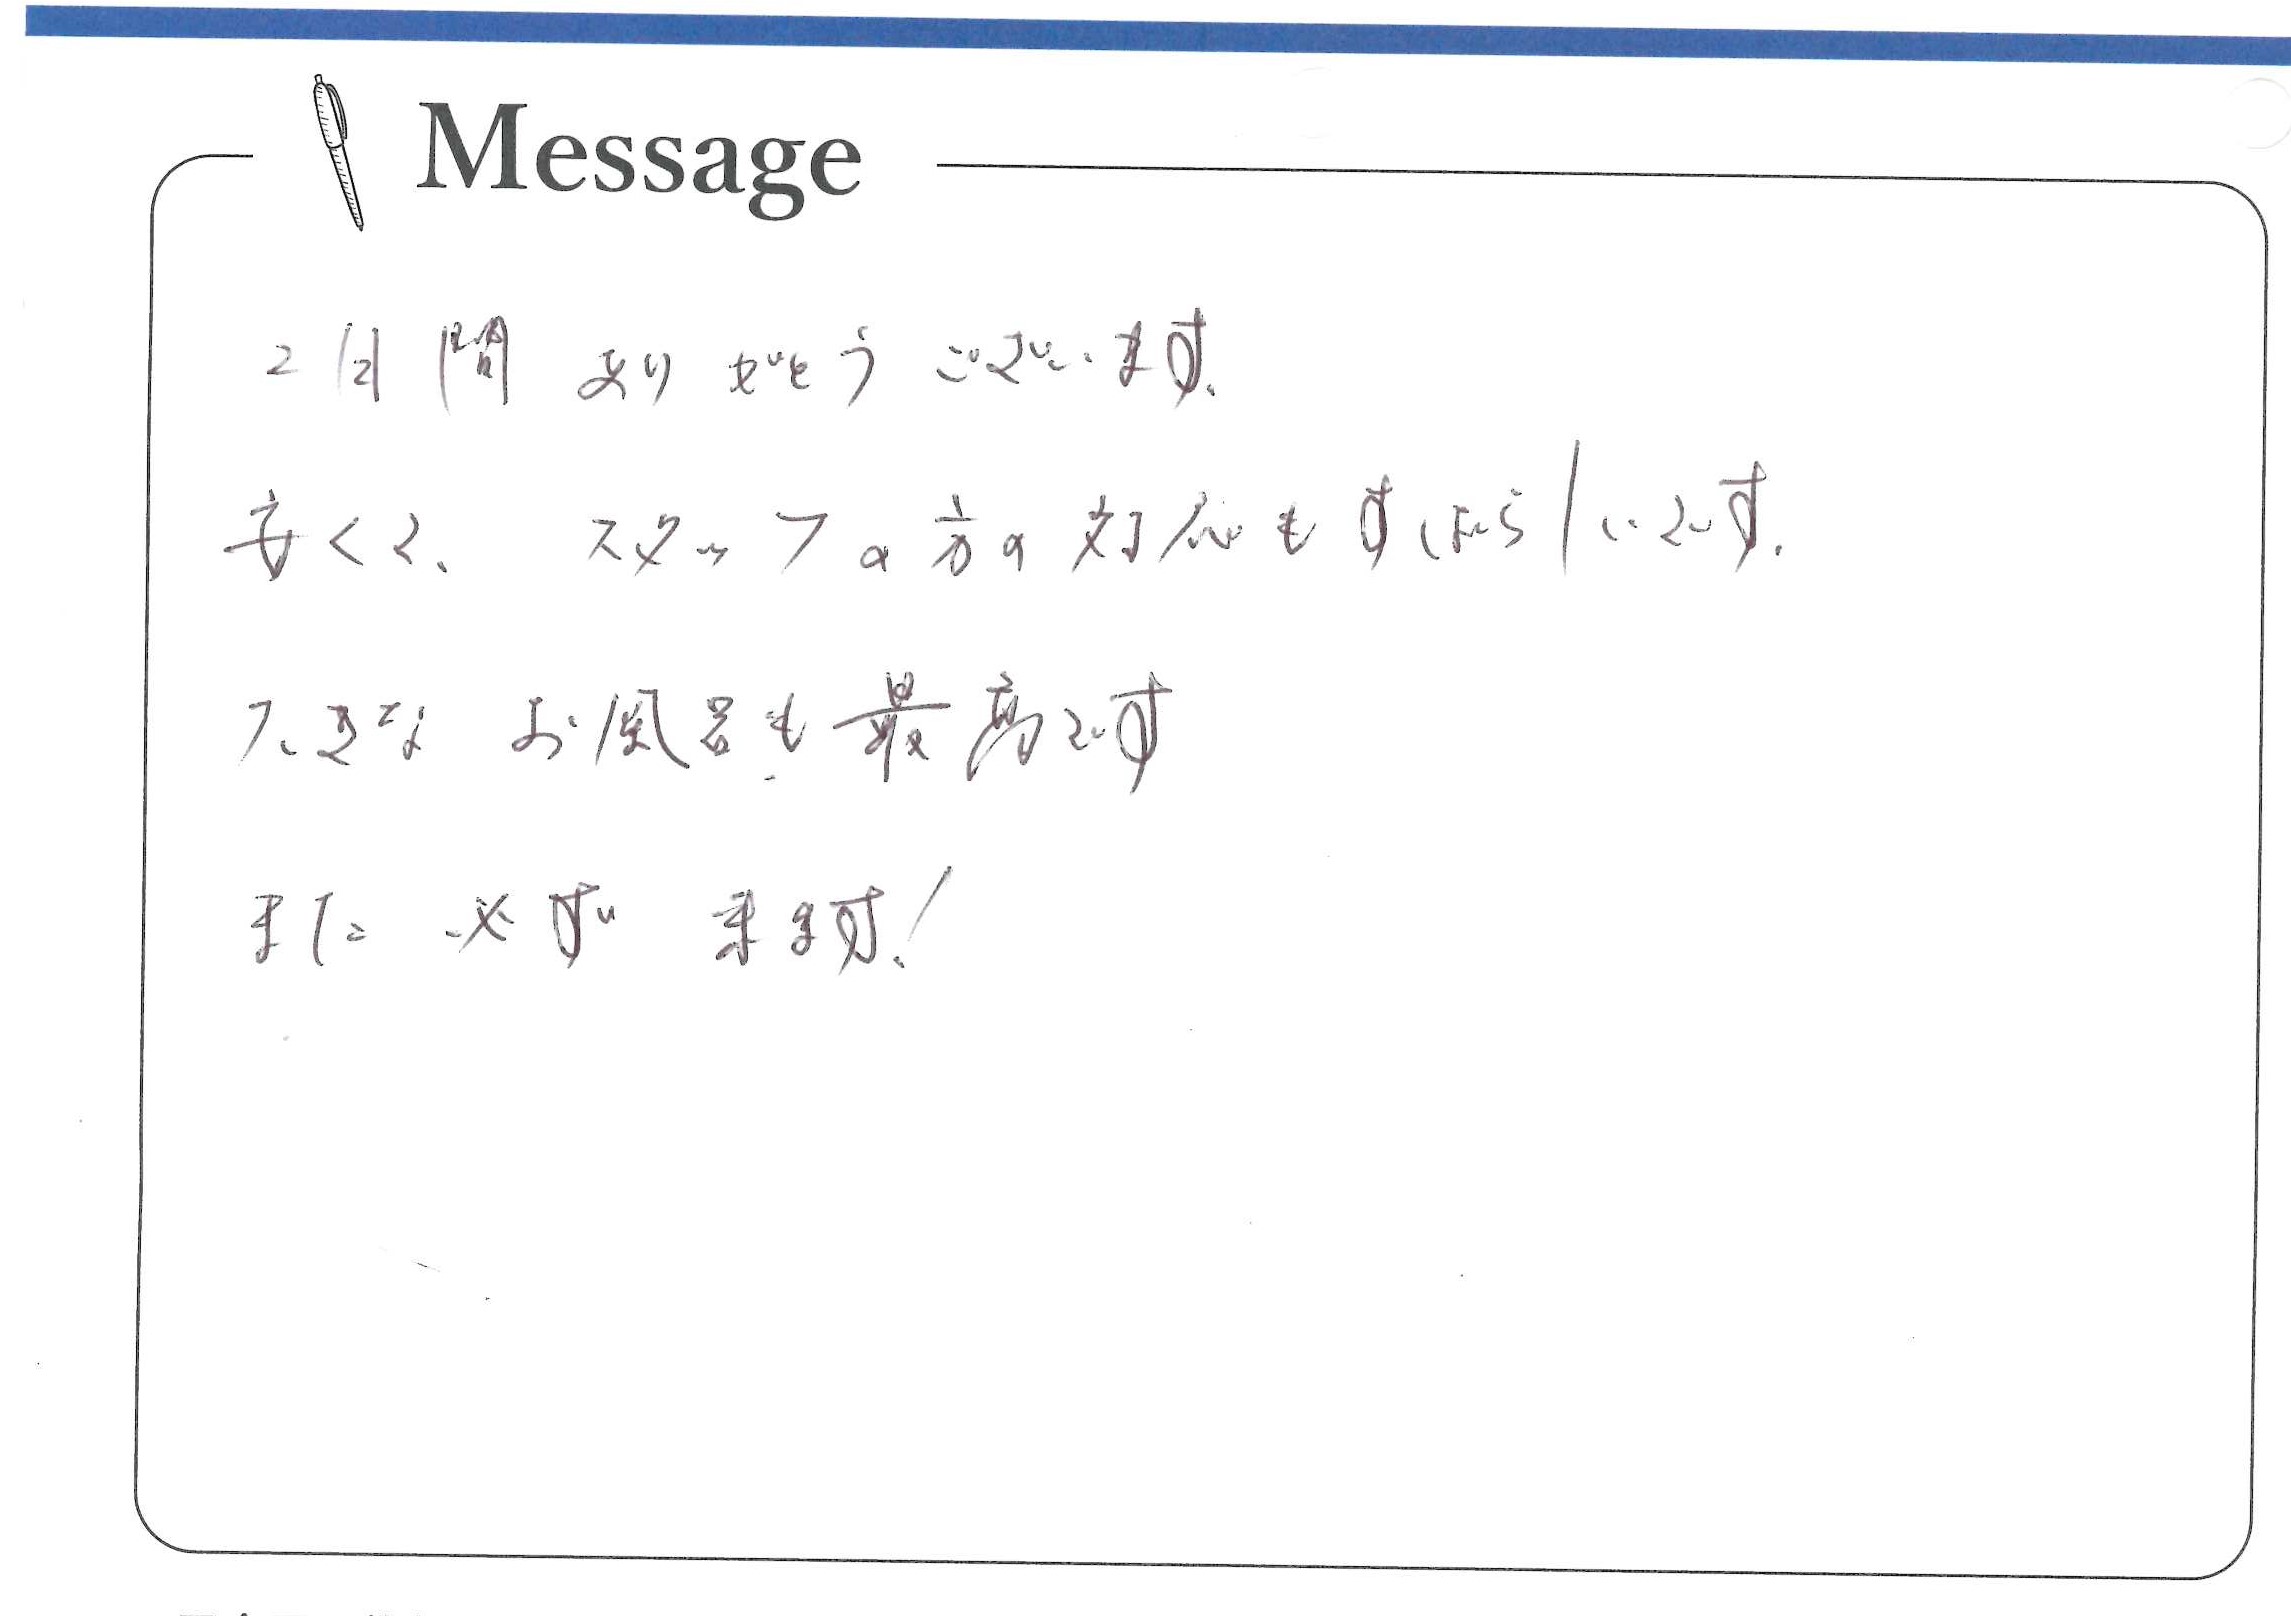 Message
2日間 ありがとうございます。
安くて、スタッフの方の対応もすばらしいです。
大きな お風呂も最高です
また 必ず 来ます!